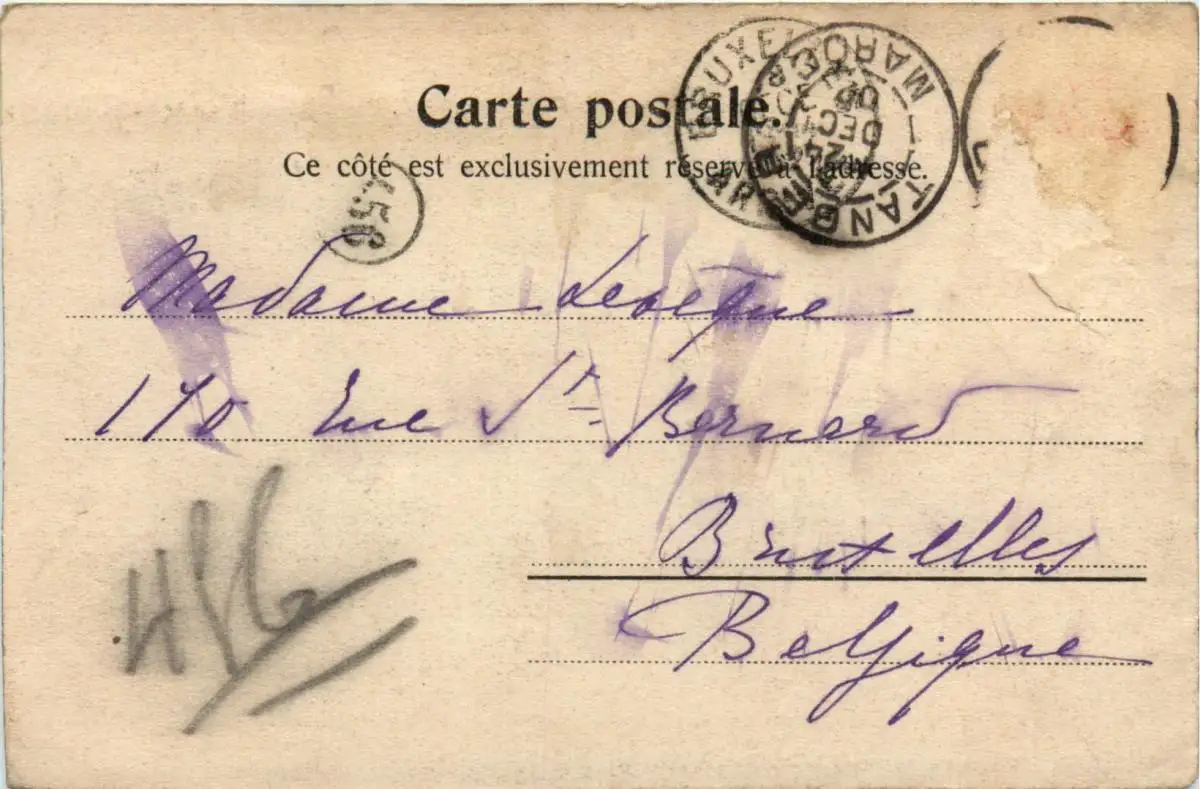 Carte postale.
Ce côté est exclusivement réservé à l'adresse.
BRUXEL
TANGER MAROC
DEC
Madame Levêque
170 Rue St Bernard
Bruxelles
Belgique